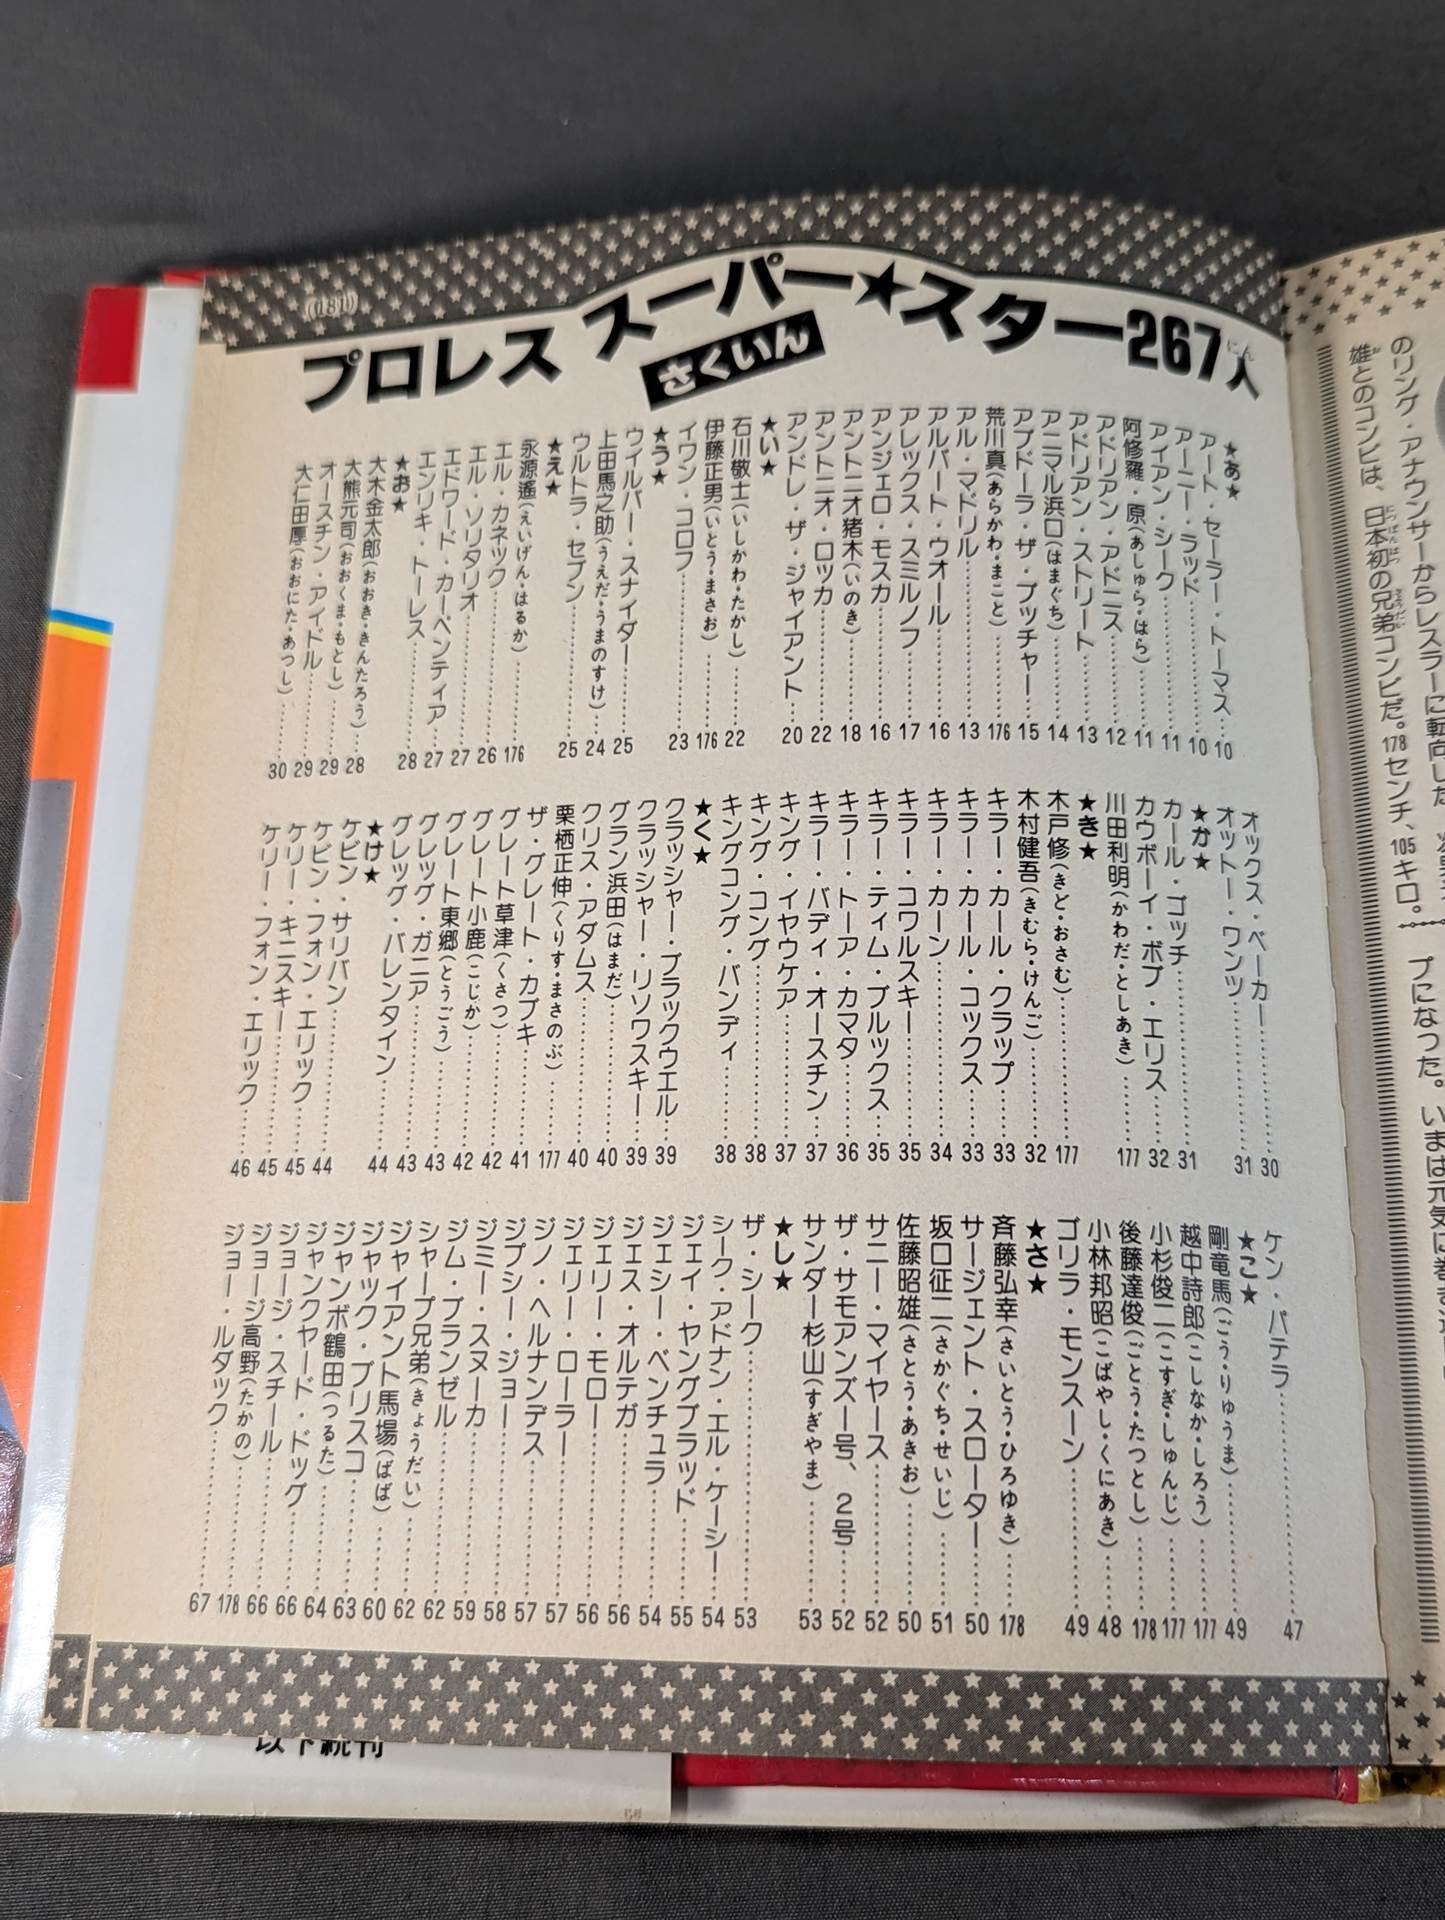 (181)
プロレス スーパー★スター267人
にん
さくいん
★あ★
アート・セーラー・トーマス……10
アーニー・ラッド……10
アイアン・シーク……11
阿修羅・原(あしゅら・はら)……11
アドリアン・アドニス……12
アドリアン・ストリート……13
アニマル浜口(はまぐち)……14
アブドーラ・ザ・ブッチャー……15
荒川真(あらかわ・まこと)……176
アル・マドリル……13
アルバート・ウオール……16
アレックス・スミルノフ……17
アンジェロ・モスカ……16
アントニオ猪木(いのき)……18
アントニオ・ロッカ……22
アンドレ・ザ・ジャイアント……20
★い★
石川敬士(いしかわ・たかし)……22
伊藤正男(いとう・まさお)……176
イワン・コロフ……23
★う★
ウイルバー・スナイダー……25
上田馬之助(うえだ・うまのすけ)……24
ウルトラ・セブン……25
★え★
永源遙(えいげん・はるか)……176
エル・カネック……26
エル・ソリタリオ……27
エドワード・カーペンティア……27
エンリキ・トーレス……28
★お★
大木金太郎(おおき・きんたろう)……28
大熊元司(おおくま・もとし)……29
オースチン・アイドル……29
大仁田厚(おおにた・あつし)……30
オックス・ベーカー……30
オットー・ワンツ……31
★か★
カール・ゴッチ……31
カウボーイ・ボブ・エリス……32
川田利明(かわだ・としあき)……177
★き★
木戸修(きど・おさむ)……177
木村健吾(きむら・けんご)……32
キラー・カール・クラップ……33
キラー・カール・コックス……33
キラー・カーン……34
キラー・コワルスキー……35
キラー・ティム・ブルックス……35
キラー・トーア・カマタ……36
キラー・バディ・オースチン……37
キング・イヤウケア……37
キング・コング……38
キングコング・バンディ……38
★く★
クラッシャー・ブラックウエル……39
クラッシャー・リソワスキー……39
グラン浜田(はまだ)……40
クリス・アダムス……40
栗栖正伸(くりす・まさのぶ)……177
ザ・グレート・カブキ……41
グレート草津(くさつ)……42
グレート小鹿(こじか)……42
グレート東郷(とうごう)……43
グレッグ・ガニア……43
グレッグ・バレンタイン……44
★け★
ケビン・サリバン……44
ケビン・フォン・エリック……45
ケリー・キニスキー……45
ケリー・フォン・エリック……46
ケン・パテラ……47
★こ★
剛竜馬(ごう・りゅうま)……49
越中詩郎(こしなか・しろう)……177
小杉俊二(こすぎ・しゅんじ)……177
後藤達俊(ごとう・たつとし)……178
小林邦昭(こばやし・くにあき)……48
ゴリラ・モンスーン……49
★さ★
斉藤弘幸(さいとう・ひろゆき)……178
サージェント・スローター……50
坂口征二(さかぐち・せいじ)……51
佐藤昭雄(さとう・あきお)……50
サニー・マイヤース……52
ザ・サモアンズ1号、2号……52
サンダー杉山(すぎやま)……53
★し★
ザ・シーク……53
シーク・アドナン・エル・ケーシー……54
ジェイ・ヤングブラッド……55
ジェシー・ベンチュラ……54
ジェス・オルテガ……56
ジェリー・モロー……56
ジェリー・ローラー……57
ジノ・ヘルナンデス……57
ジプシー・ジョー……58
ジミー・スヌーカ……59
ジム・ブランゼル……62
シャープ兄弟(きょうだい)……62
ジャイアント馬場(ばば)……60
ジャック・ブリスコ……63
ジャンボ鶴田(つるた)……64
ジャンクヤード・ドッグ……66
ジョージ・スチール……66
ジョージ高野(たかの)……178
ジョー・ルダック……67
のリング・アナウンサーからレスラーに転向した。
雄とのコンビは、日本初の兄弟コンビだ。178センチ、105キロ。
プになった。いまは元気に
以下続刊